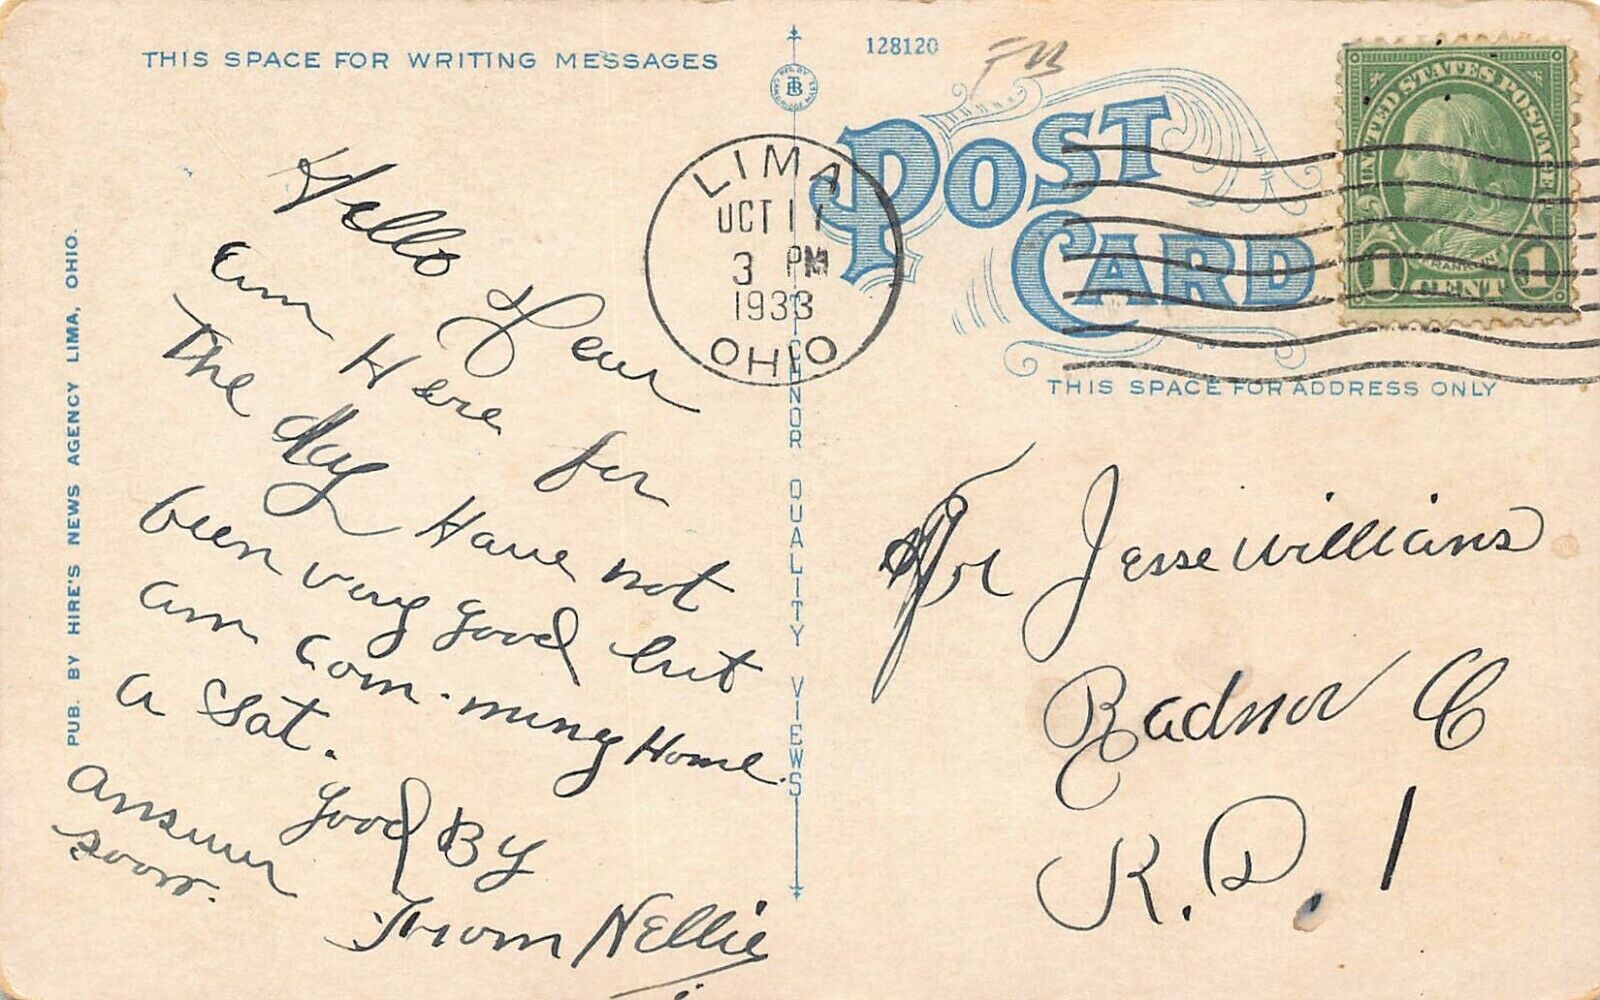 THIS SPACE FOR WRITING MESSAGES
128120
POST
CARD
UNITED STATES POSTAGE
FRANKLIN
1 CENT 1
LIMA
OCT 17
3 PM
1933
OHIO
THIS SPACE FOR ADDRESS ONLY
PUB. BY HIRE'S NEWS AGENCY LIMA, OHIO.
TICHNOR QUALITY VIEWS
Hello Dear
am Here for
The day Have not
been very good but
am com-ming Home
a Sat.
good By
answer
soon.
From Nellie
Mr Jesse Williams
Radnor O
R.D. 1